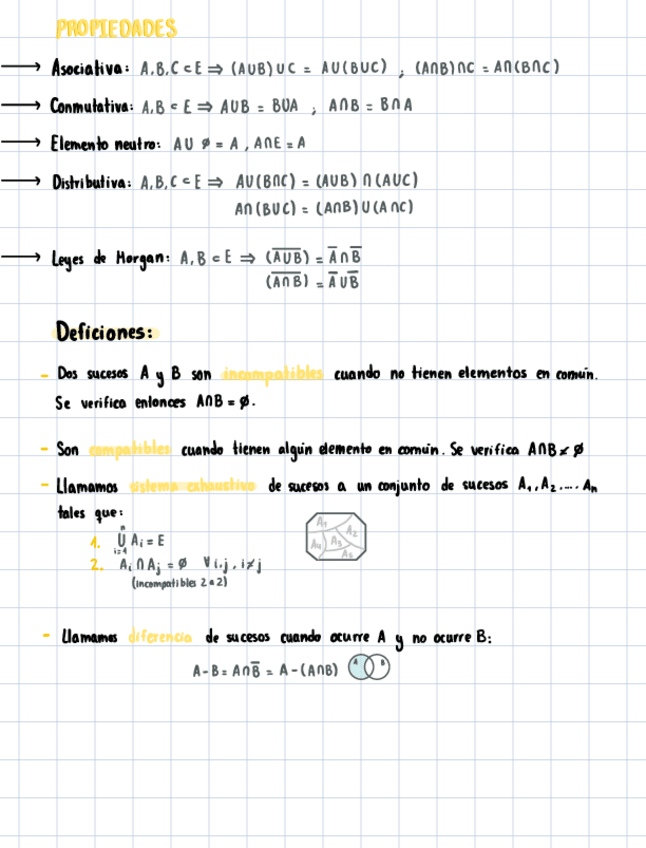 PROPIEDADES
Asociativa: A,B,C ⊂ E ⇒ (A∪B)∪C = A∪(B∪C) ; (A∩B)∩C = A∩(B∩C)
Conmutativa: A,B ⊂ E ⇒ A∪B = B∪A ; A∩B = B∩A
Elemento neutro: A∪ ∅ = A , A∩E = A
Distributiva: A,B,C ⊂ E ⇒ A∪(B∩C) = (A∪B) ∩ (A∪C)
A∩(B∪C) = (A∩B)∪(A∩C)
Leyes de Morgan: A,B ⊂ E ⇒ (A̅∪̅B̅) = A̅∩B̅
(A̅∩̅B̅) = A̅∪B̅
Deficiones:
- Dos sucesos A y B son incompatibles cuando no tienen elementos en común.
Se verifica entonces A∩B = ∅.
- Son compatibles cuando tienen algún elemento en común. Se verifica A∩B ≠ ∅
- Llamamos sistema exhaustivo de sucesos a un conjunto de sucesos A₁, A₂ .... Aₙ
tales que:
1. ⋃ⁿᵢ₌₁ Aᵢ = E
2. Aᵢ ∩ Aⱼ = ∅ ∀ i,j , i≠j
(incompatibles 2 a 2)
A₁
A₂
A₄ A₃
A₅
- Llamamos diferencia de sucesos cuando ocurre A y no ocurre B:
A-B = A∩B̅ = A-(A∩B)
A B